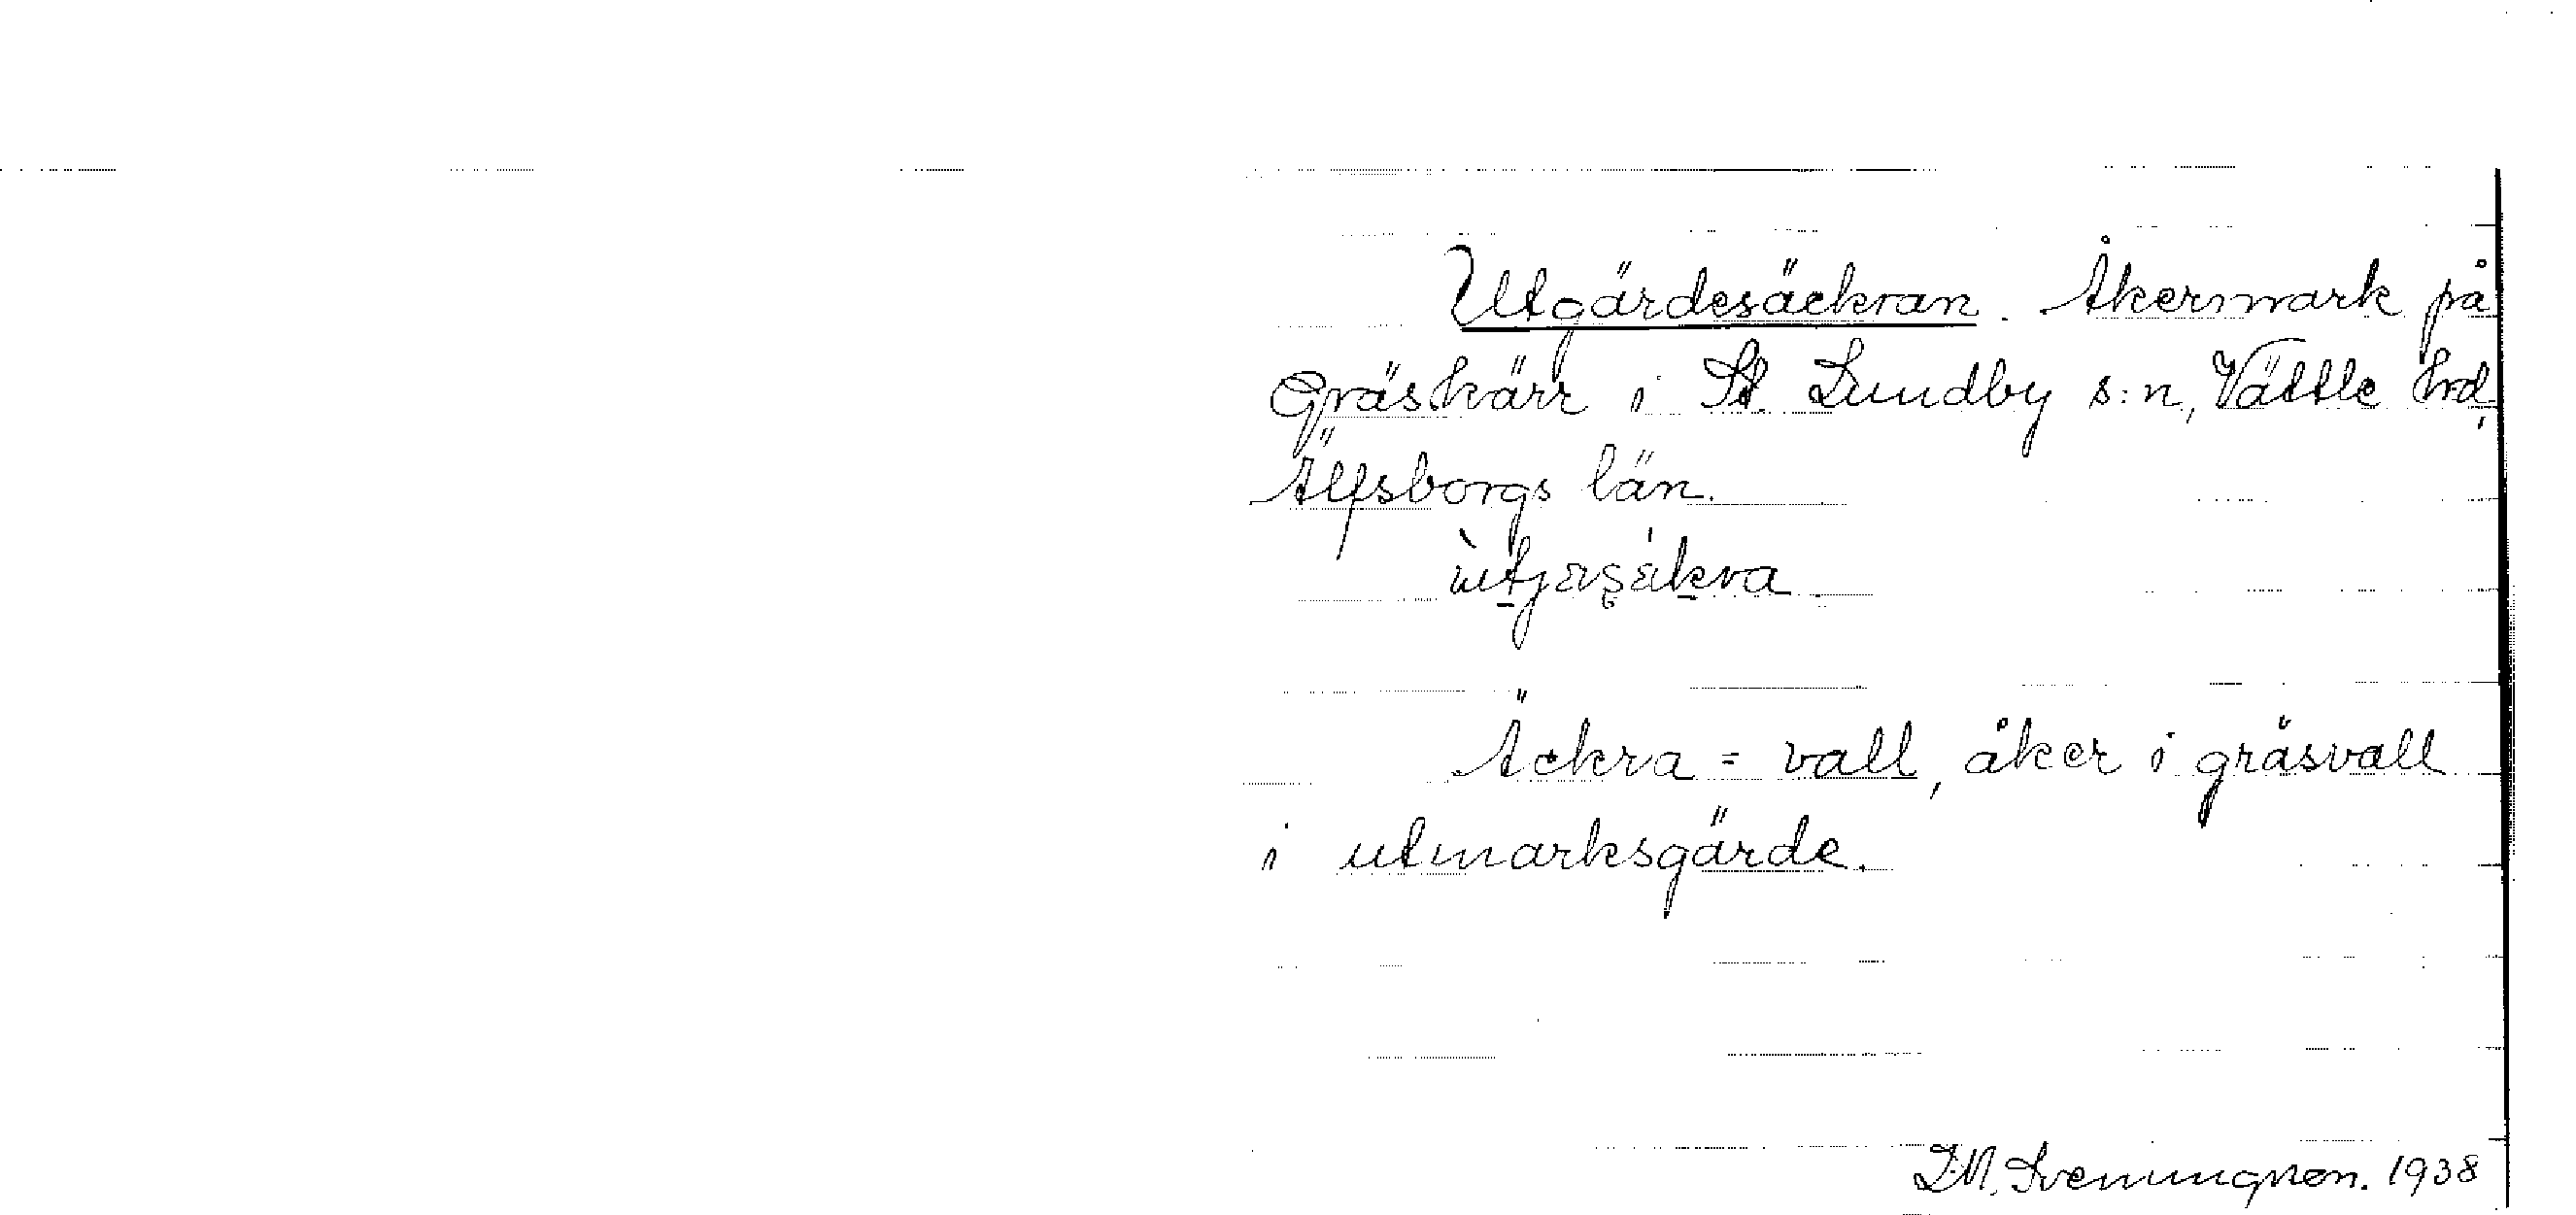 Utgärdesäckran. Åkermark på
Gräskärr i St. Lundby s:n, Vättle hrd,
Älfsborgs län.
Äckra = vall, åker i gräsvall
i utmarksgärde.
Svenungson. 1938